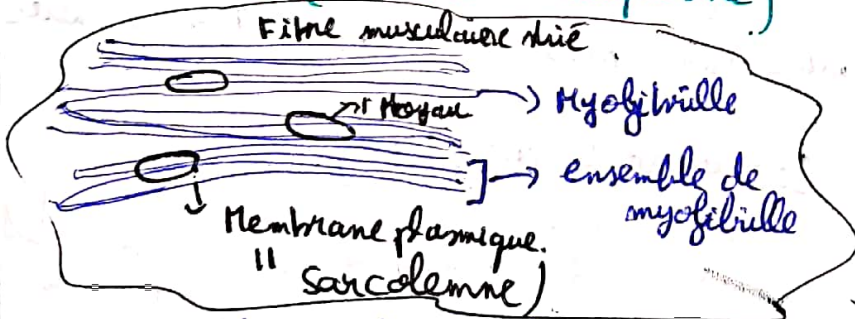 Fibre musculaire strié
→ Noyau
→ Myofibrille
→ ensemble de
myofibrille
Membrane plasmique.
" sarcolemne)